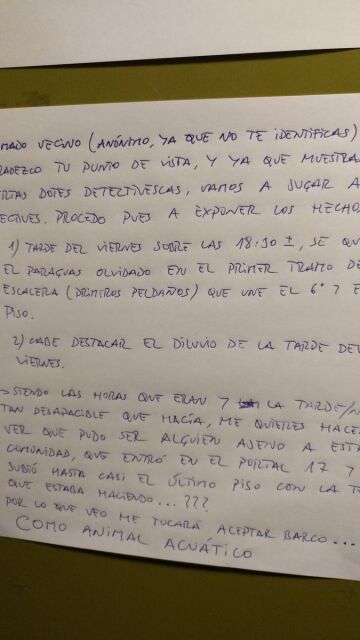 MADO VECINO (ANÓNIMO, YA QUE NO TE IDENTIFICAS)
RADEZCO TU PUNTO DE VISTA, Y YA QUE MUESTRA
RTAS DOTES DETECTIVESCAS, VAMOS A JUGAR A
ECTIVES. PROCEDO PUES A EXPONER LOS HECHO
1) TARDE DEL VIERNES SOBRE LAS 18:30 ±, SE QU
EL PARAGUAS OLVIDADO EN EL PRIMER TRAMO DE
ESCALERA (PRIMEROS PELDAÑOS) QUE UNE EL 6º Y E
PISO.
2) CABE DESTACAR EL DILUVIO DE LA TARDE DEL
VIERNES.
->SIENDO LAS HORAS QUE ERAN Y LA TARDE/N
TAN DESAPACIBLE QUE HACÍA, ME QUIERES HACE
VER QUE PUDO SER ALGUIEN AJENO A ESTA
COMUNIDAD, QUE ENTRÓ EN EL PORTAL 17 Y
SUBIÓ HASTA CASI EL ÚLTIMO PISO CON LA T
QUE ESTABA HACIENDO...???
POR LO QUE VEO ME TOCARÁ ACEPTAR BARCO...
COMO ANIMAL ACUÁTICO